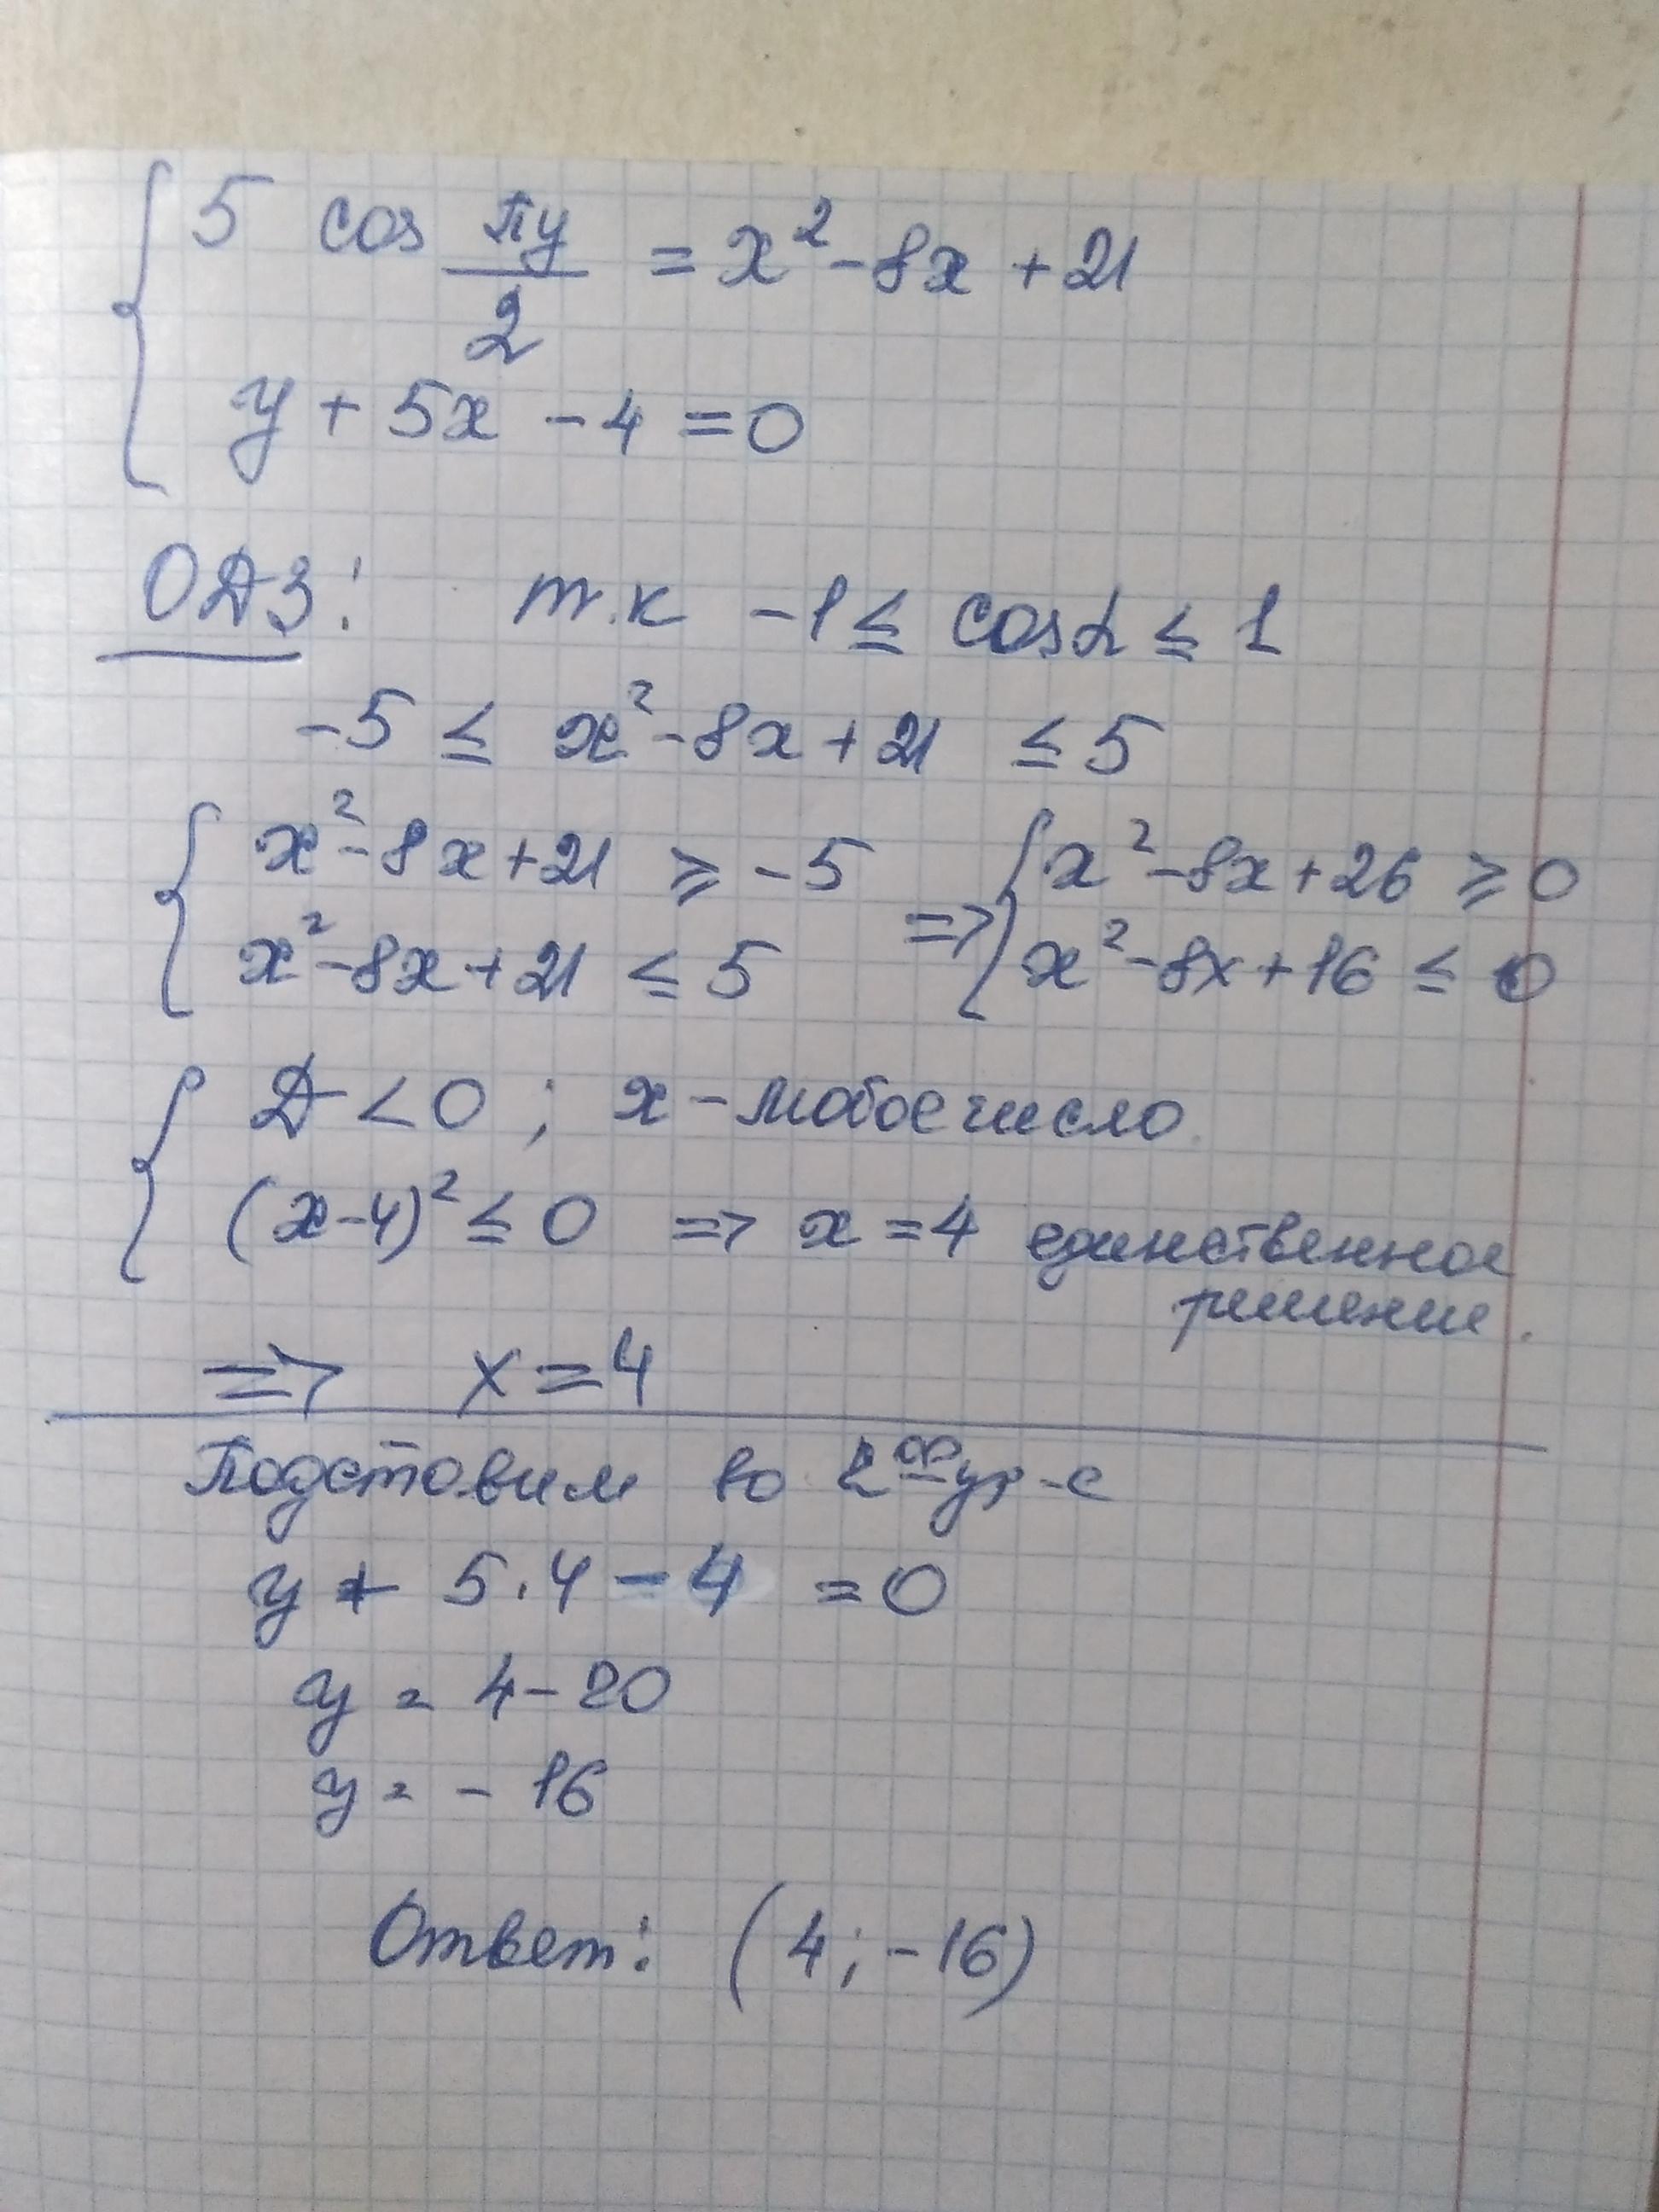 5 cos πy/2 = x² - 8x + 21
y + 5x - 4 = 0
ОДЗ: т.к -1 ≤ cos α ≤ 1
-5 ≤ x² - 8x + 21 ≤ 5
x² - 8x + 21 ≥ -5 => x² - 8x + 26 ≥ 0
x² - 8x + 21 ≤ 5 x² - 8x + 16 ≤ 0
Д < 0 ; x - любое число
(x - 4)² ≤ 0 => x = 4 единственное
решение.
=> x = 4
Подставим во 2ое ур-е
y + 5 · 4 - 4 = 0
y = 4 - 20
y = - 16
Ответ: (4; -16)